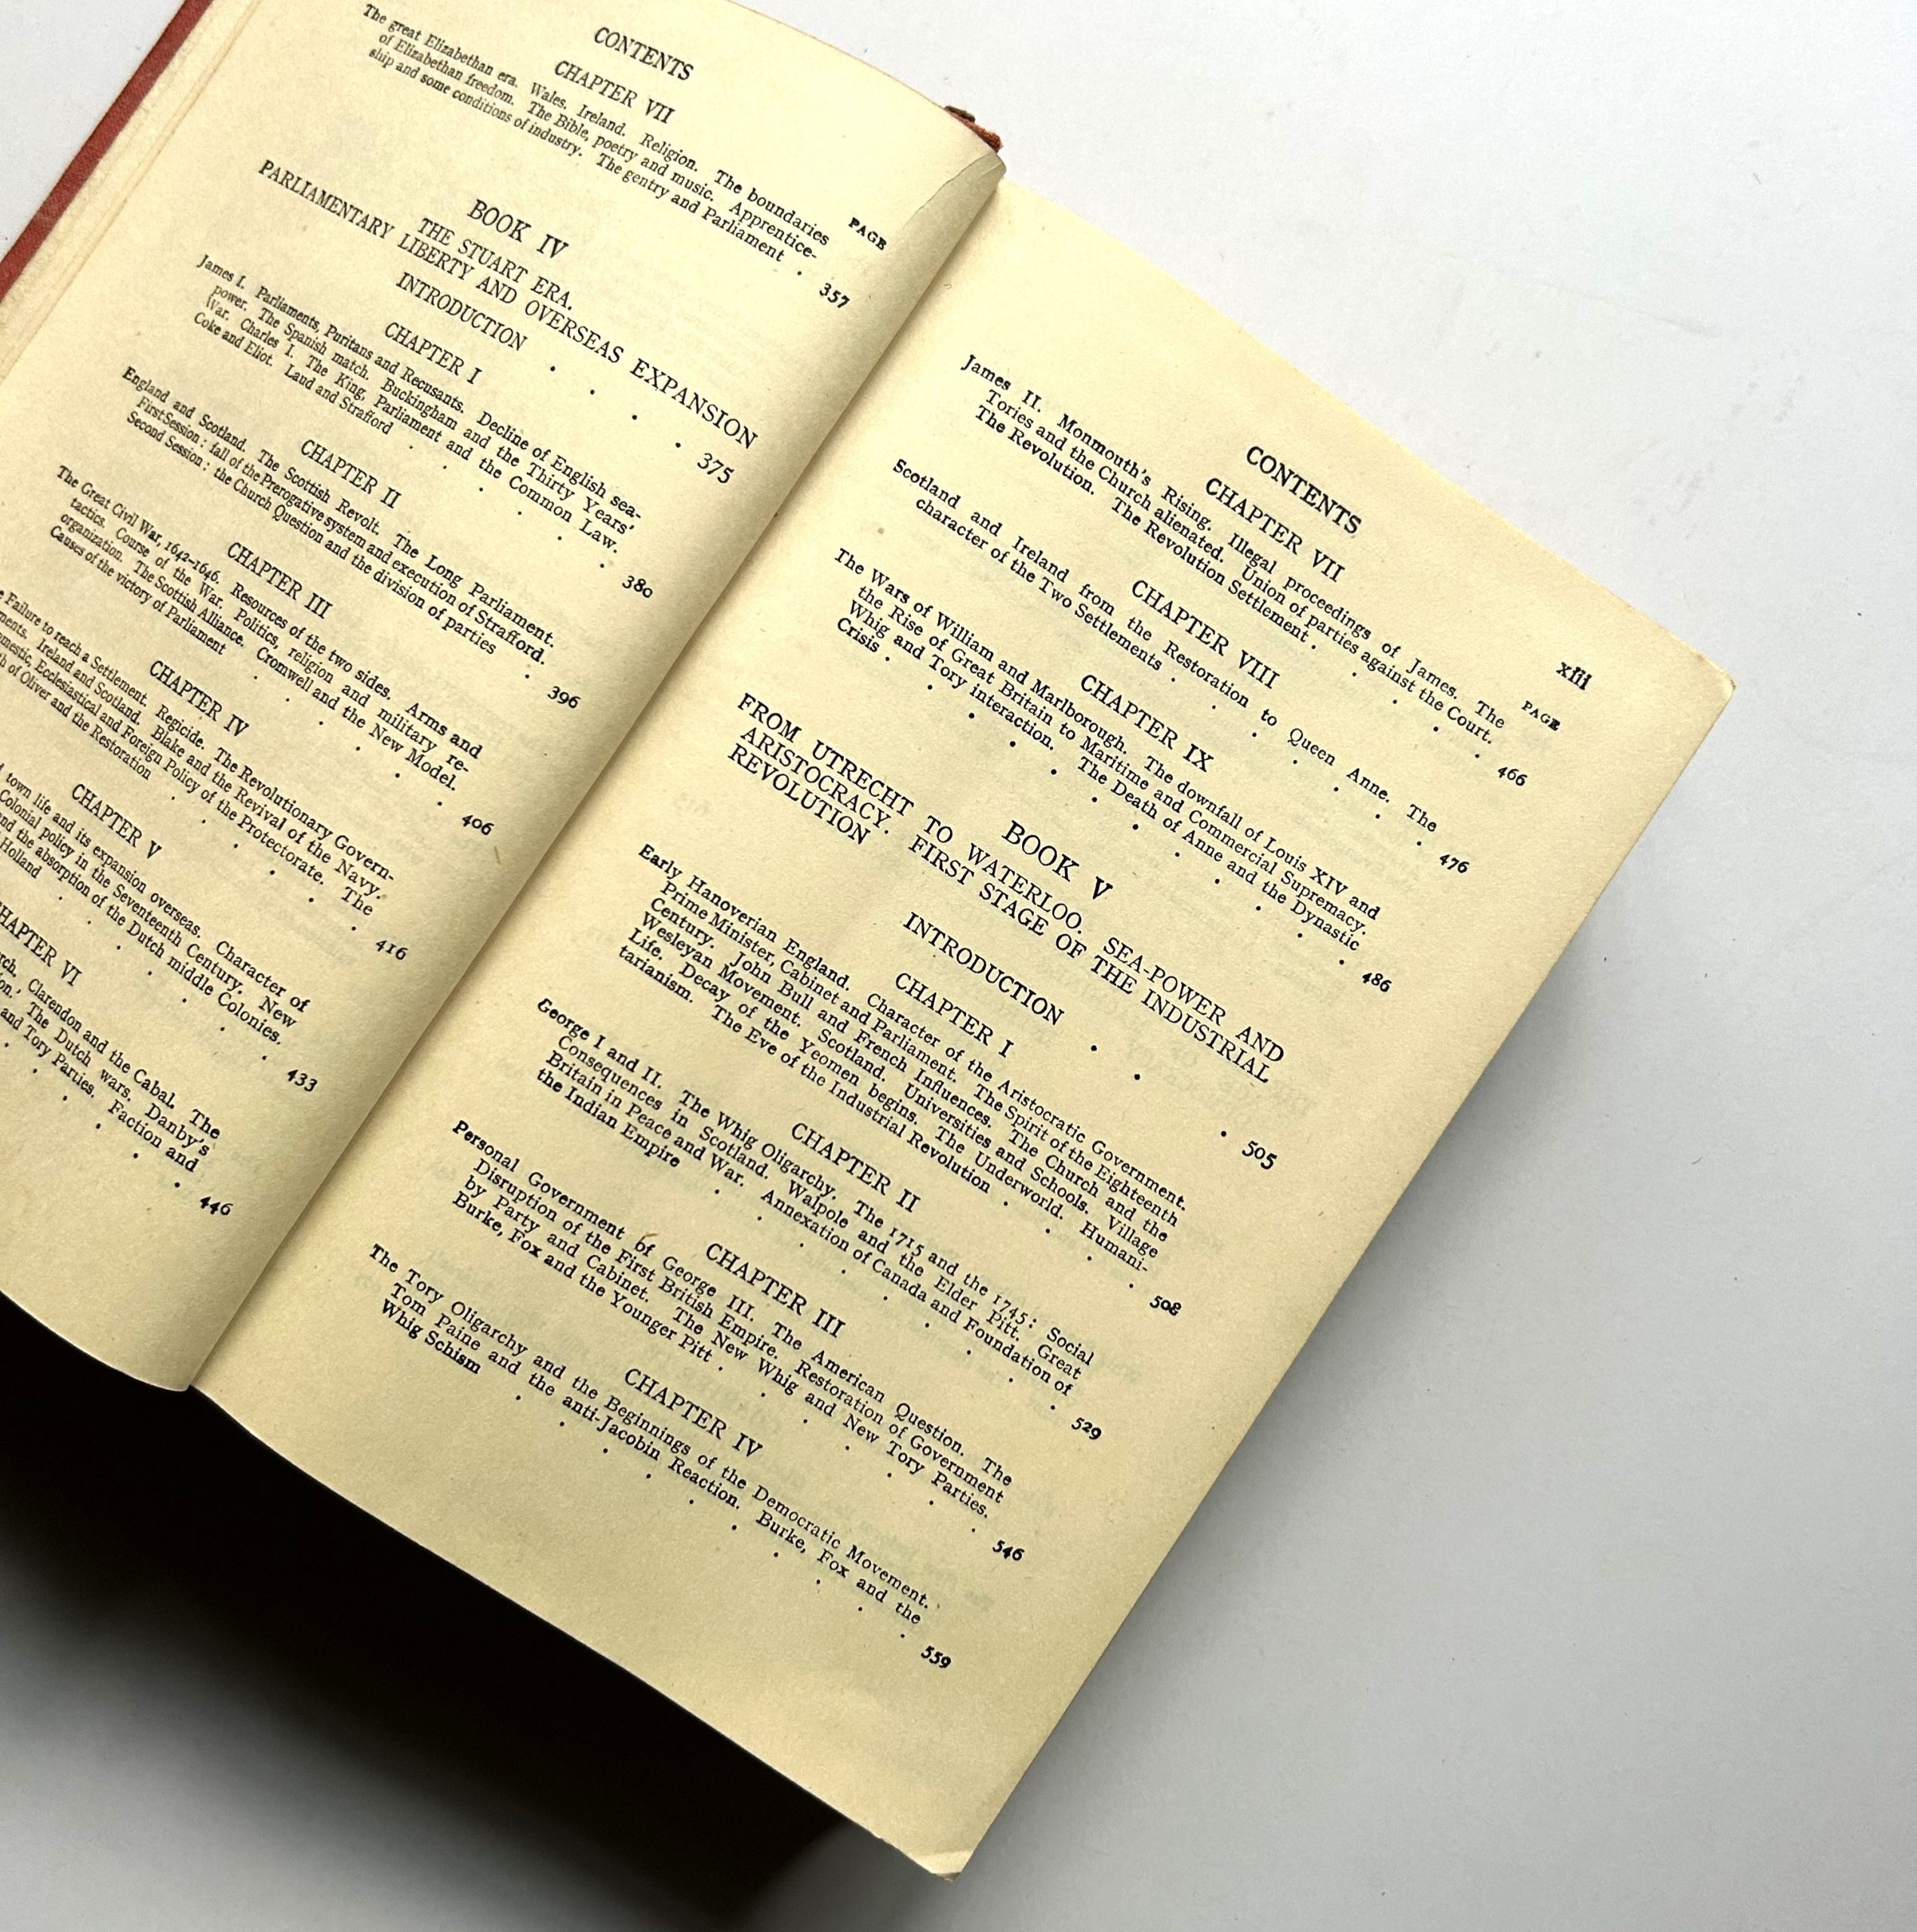 CONTENTS
CHAPTER VII
PAGE
The great Elizabethan era. Wales. Ireland. Religion. The boundaries
of Elizabethan freedom. The Bible, poetry and music. Apprentice-
ship and some conditions of industry. The gentry and Parliament . 357
BOOK IV
THE STUART ERA.
PARLIAMENTARY LIBERTY AND OVERSEAS EXPANSION
INTRODUCTION . . . . 375
CHAPTER I
James I. Parliaments, Puritans and Recusants. Decline of English sea-
power. The Spanish match. Buckingham and the Thirty Years'
War. Charles I. The King, Parliament and the Common Law.
Coke and Eliot. Laud and Strafford . . . . . . 380
CHAPTER II
England and Scotland. The Scottish Revolt. The Long Parliament.
First Session: fall of the Prerogative system and execution of Strafford.
Second Session: the Church Question and the division of parties . 396
CHAPTER III
The Great Civil War, 1642-1646. Resources of the two sides. Arms and
tactics. Course of the War. Politics, religion and military re-
organization. The Scottish Alliance. Cromwell and the New Model.
Causes of the victory of Parliament . . . . . . 406
CHAPTER IV
Failure to reach a Settlement. Regicide. The Revolutionary Govern-
ments. Ireland and Scotland. Blake and the Revival of the Navy.
Ecclesiastical and Foreign Policy of the Protectorate. The
of Oliver and the Restoration . . . . . 416
CHAPTER V
town life and its expansion overseas. Character of
Colonial policy in the Seventeenth Century. New
and the absorption of the Dutch middle Colonies.
Holland . . . . . . . 433
CHAPTER VI
Clarendon and the Cabal. The
The Dutch wars. Danby's
and Tory Parties. Faction and
. . . . . . 446
CONTENTS xiii
CHAPTER VII
PAGE
James II. Monmouth's Rising. Illegal proceedings of James. The
Tories and the Church alienated. Union of parties against the Court.
The Revolution. The Revolution Settlement . . . . . 466
CHAPTER VIII
Scotland and Ireland from the Restoration to Queen Anne. The
character of the Two Settlements . . . . . . . 476
CHAPTER IX
The Wars of William and Marlborough. The downfall of Louis XIV and
the Rise of Great Britain to Maritime and Commercial Supremacy.
Whig and Tory interaction. The Death of Anne and the Dynastic
Crisis . . . . . . . . . . . . 486
BOOK V
FROM UTRECHT TO WATERLOO. SEA-POWER AND
ARISTOCRACY. FIRST STAGE OF THE INDUSTRIAL
REVOLUTION
INTRODUCTION . . . 505
CHAPTER I
Early Hanoverian England. Character of the Aristocratic Government.
Prime Minister, Cabinet and Parliament. The Spirit of the Eighteenth
Century. John Bull and French Influences. The Church and the
Wesleyan Movement. Scotland. Universities and Schools. Village
Life. Decay of the Yeomen begins. The Underworld. Humani-
tarianism. The Eve of the Industrial Revolution . . . . 508
CHAPTER II
George I and II. The Whig Oligarchy. The 1715 and the 1745: Social
Consequences in Scotland. Walpole and the Elder Pitt. Great
Britain in Peace and War. Annexation of Canada and Foundation of
the Indian Empire . . . . . . . . . 529
CHAPTER III
Personal Government of George III. The American Question. The
Disruption of the First British Empire. Restoration of Government
by Party and Cabinet. The New Whig and New Tory Parties.
Burke, Fox and the Younger Pitt . . . . . . . 546
CHAPTER IV
The Tory Oligarchy and the Beginnings of the Democratic Movement.
Tom Paine and the anti-Jacobin Reaction. Burke, Fox and the
Whig Schism . . . . . . . . . . 559